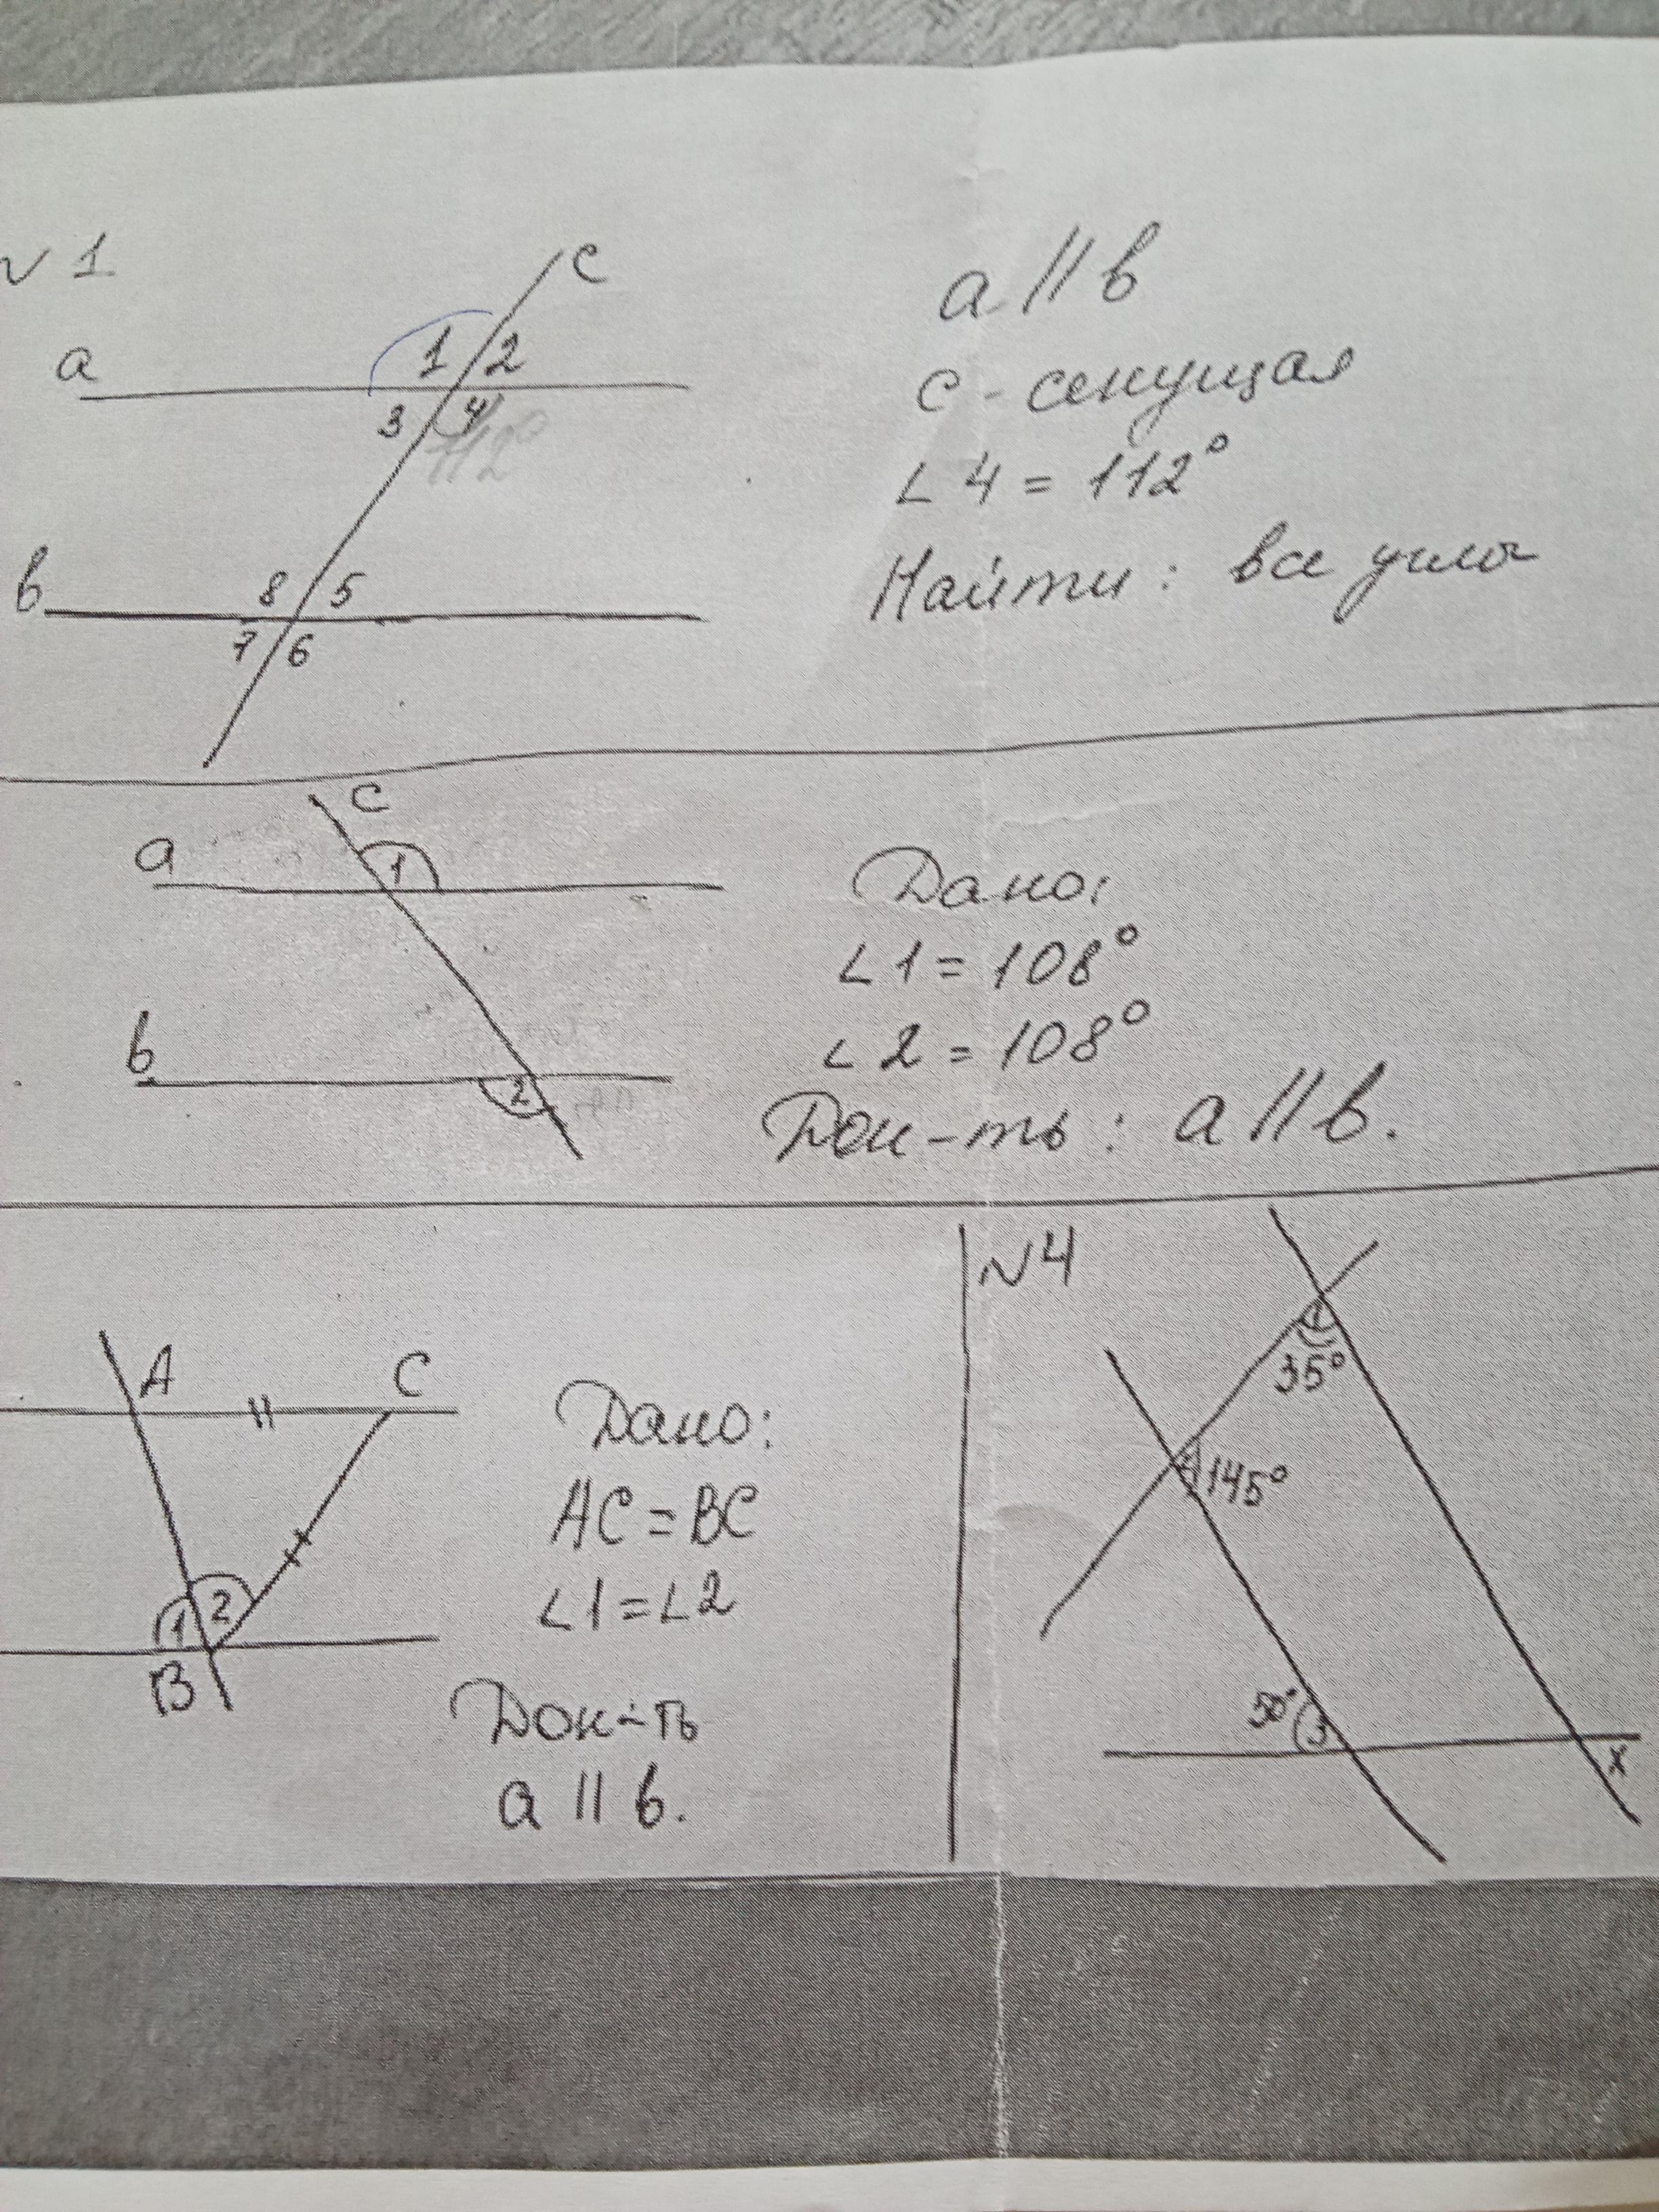 √ 1
c
a
1 2
3 4
112°
b
8 5
7 6
a || b
c - секущая
∠4 = 112°
Найти: все углы
c
a
1
b
2
Дано:
∠1 = 108°
∠2 = 108°
Док-ть: a || b.
A
C
1 2
B
Дано:
AC = BC
∠1 = ∠2
Док-ть
a || b.
N4
35°
145°
50°
3
x